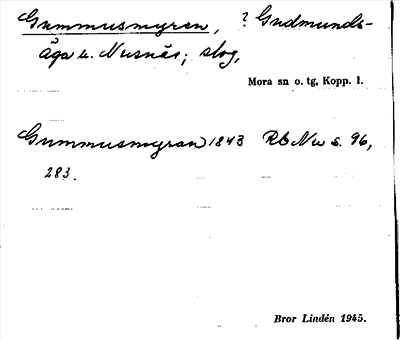 Gummusmyren, ? Gudmunds-
äga u. Nusnäs; slog,
Mora sn o. tg, Kopp. l.
Gummusmyran 1843 Rb Nu s. 96,
283.
Bror Lindén 1945.